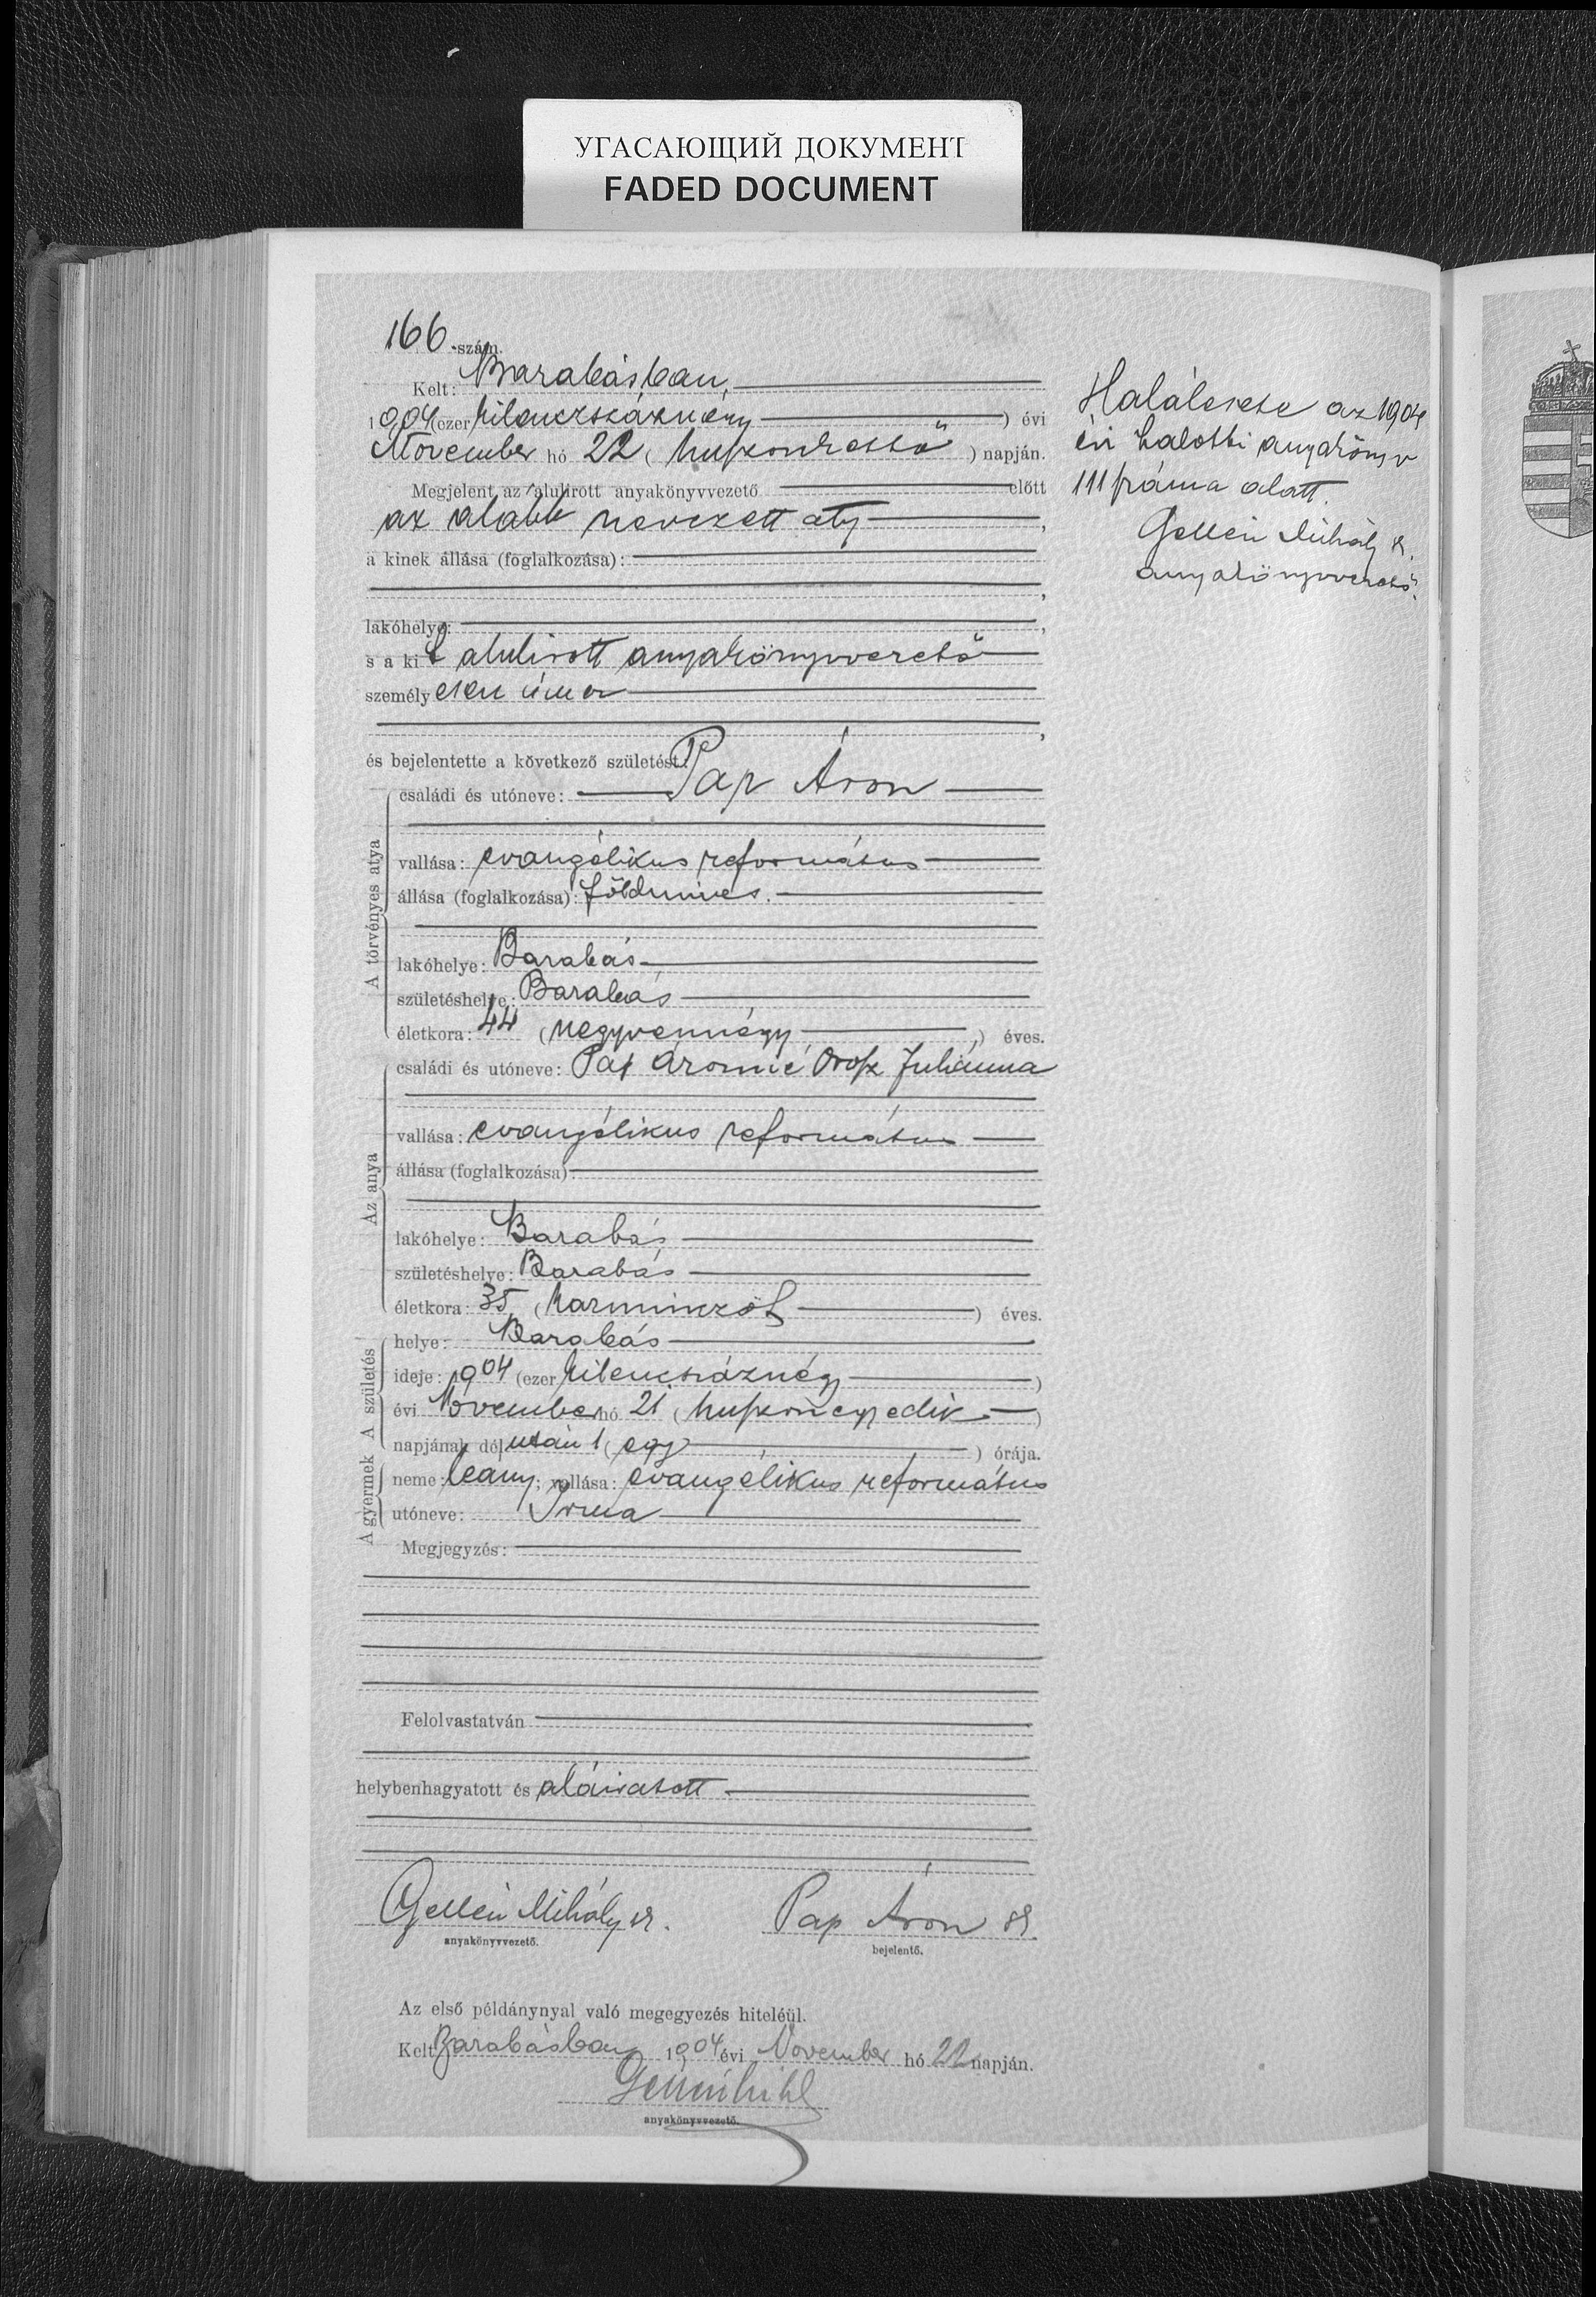 УГАСАЮЩИЙ ДОКУМЕНТ
FADED DOCUMENT
166 -szám.
Kelt: Barabásban,
1904 (ezer kilenczszáznégy) évi
November hó 22 (huszonkettő) napján.
Megjelent az alulirott anyakönyvvezető előtt
az alább nevezett aty,
a kinek állása (foglalkozása):
,
lakóhelye: ,
s a kit alulirott anyakönyvvezető
személyesen ismer
,
és bejelentette a következő születést:
A törvényes atya
családi és utóneve: Pap Áron
vallása: evangélikus református
állása (foglalkozása): földmives.
lakóhelye: Barabás
születéshelye: Barabás
életkora: 44 (negyvennégy) éves.
Az anya
családi és utóneve: Pap Áronné Orosz Juliánna
vallása: evangélikus református
állása (foglalkozása):
lakóhelye: Barabás
születéshelye: Barabás
életkora: 35 (harminczöt) éves.
A születés
helye: Barabás
ideje: 1904 (ezer kilencszáznégy)
évi November hó 21 (huszonegyedik)
napjának délután 1 (egy) órája.
A gyermek
neme: leány; vallása: evangélikus református
utóneve: Irma
Megjegyzés:
Felolvastatván
helybenhagyatott és aláiratott
Gellén Mihály sk. Pap Áron sk.
anyakönyvvezető. bejelentő.
Az első példánynyal való megegyezés hiteléül.
Kelt Barabásban 1904 évi November hó 22 napján.
Gellén Mihl
anyakönyvvezető.
Halálesete az 1904
évi halotti anyakönyv
111 száma alatt.
Gellén Mihály sk.
anyakönyvvezető.